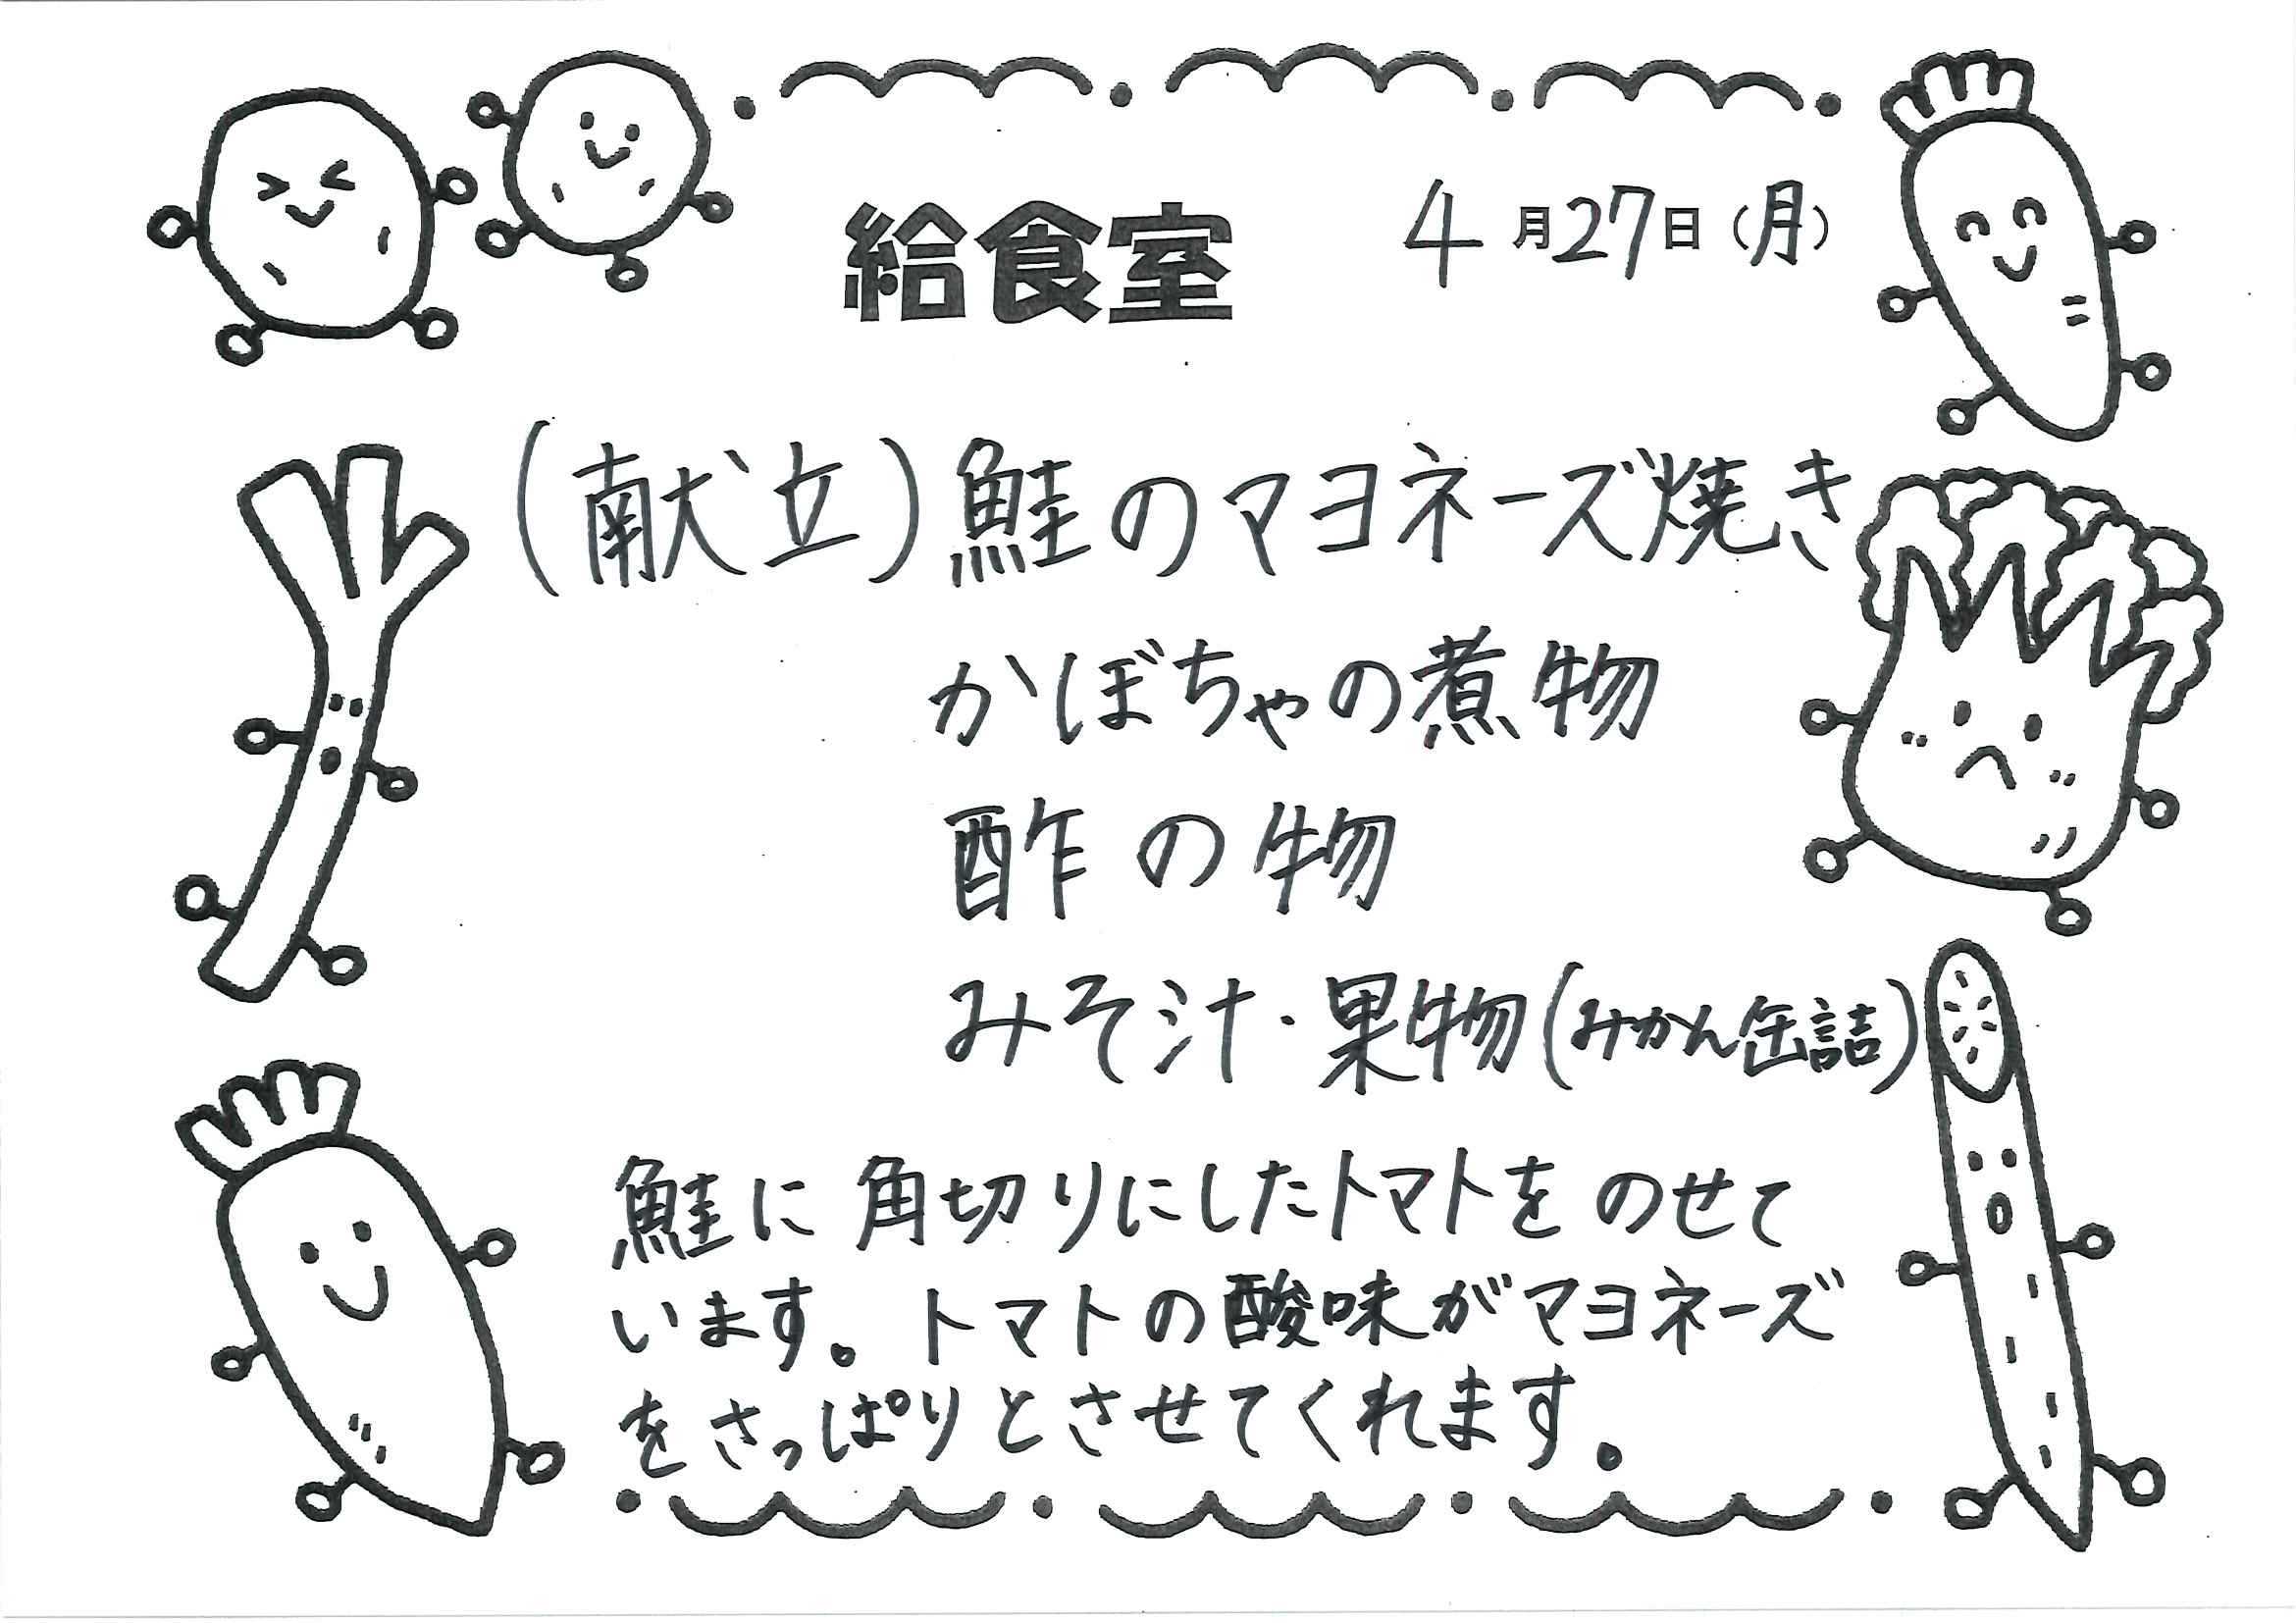 給食室 4月27日(月)
(献立)鮭のマヨネーズ焼き
かぼちゃの煮物
酢の物
みそ汁・果物(みかん缶詰)
鮭に角切りにしたトマトをのせて
います。トマトの酸味がマヨネーズ
をさっぱりとさせてくれます。